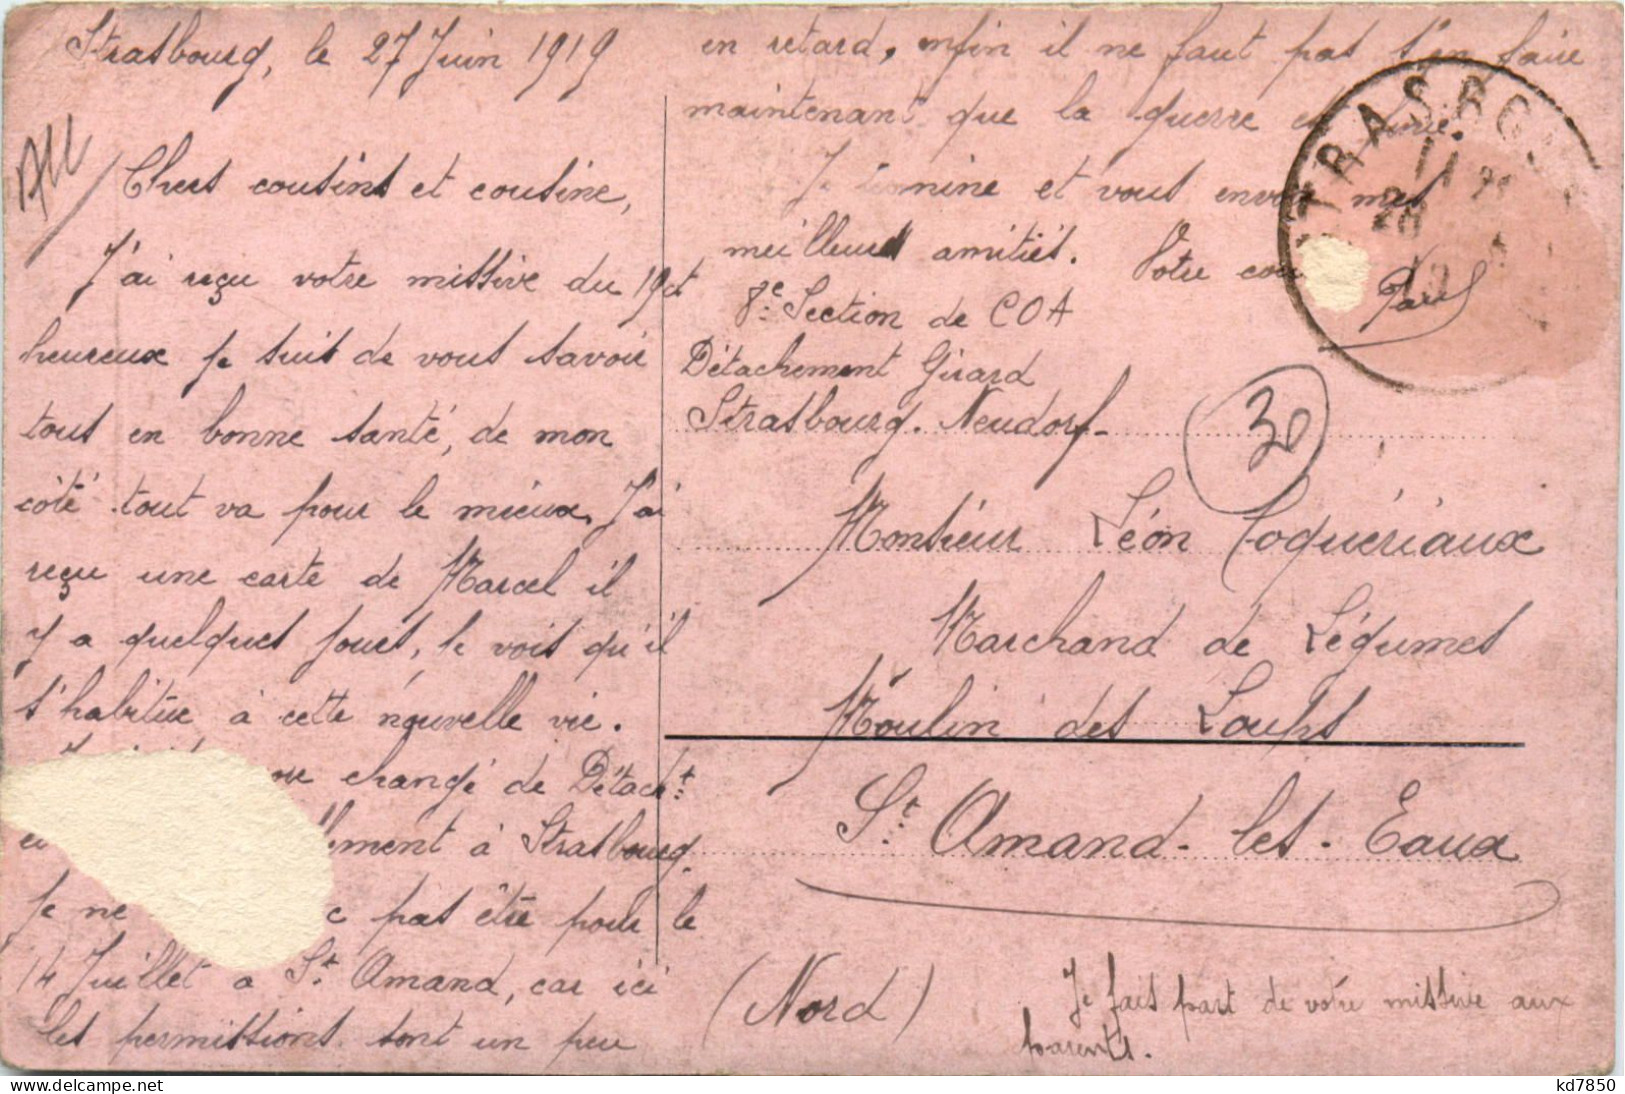 Strasbourg, le 27 Juin 1919
Chers cousins et cousine,
J'ai reçu votre missive du 19 et
heureux je suis de vous savoir
tous en bonne santé, de mon
côté tout va pour le mieux. J'ai
reçu une carte de Marcel il
y a quelques jours, je vois qu'il
s'habitue à cette nouvelle vie.
changé de Détacht
à Strasbourg.
Je ne pas être pour le
14 Juillet à St Amand, car ici
les permissions sont un peu
en retard, enfin il ne faut pas s'en faire
maintenant que la guerre est finie.
Je termine et vous envoie mes
meilleures amitiés. Votre
8e Section de COA
Détachement Girard
Strasbourg. Neudorf.
STRASBO
30
Monsieur Léon Coquériaux
Marchand de Légumes
Moulin des Loups
St Amand-les-Eaux
(Nord)
Je fais part de votre missive aux
parents.
kd7850